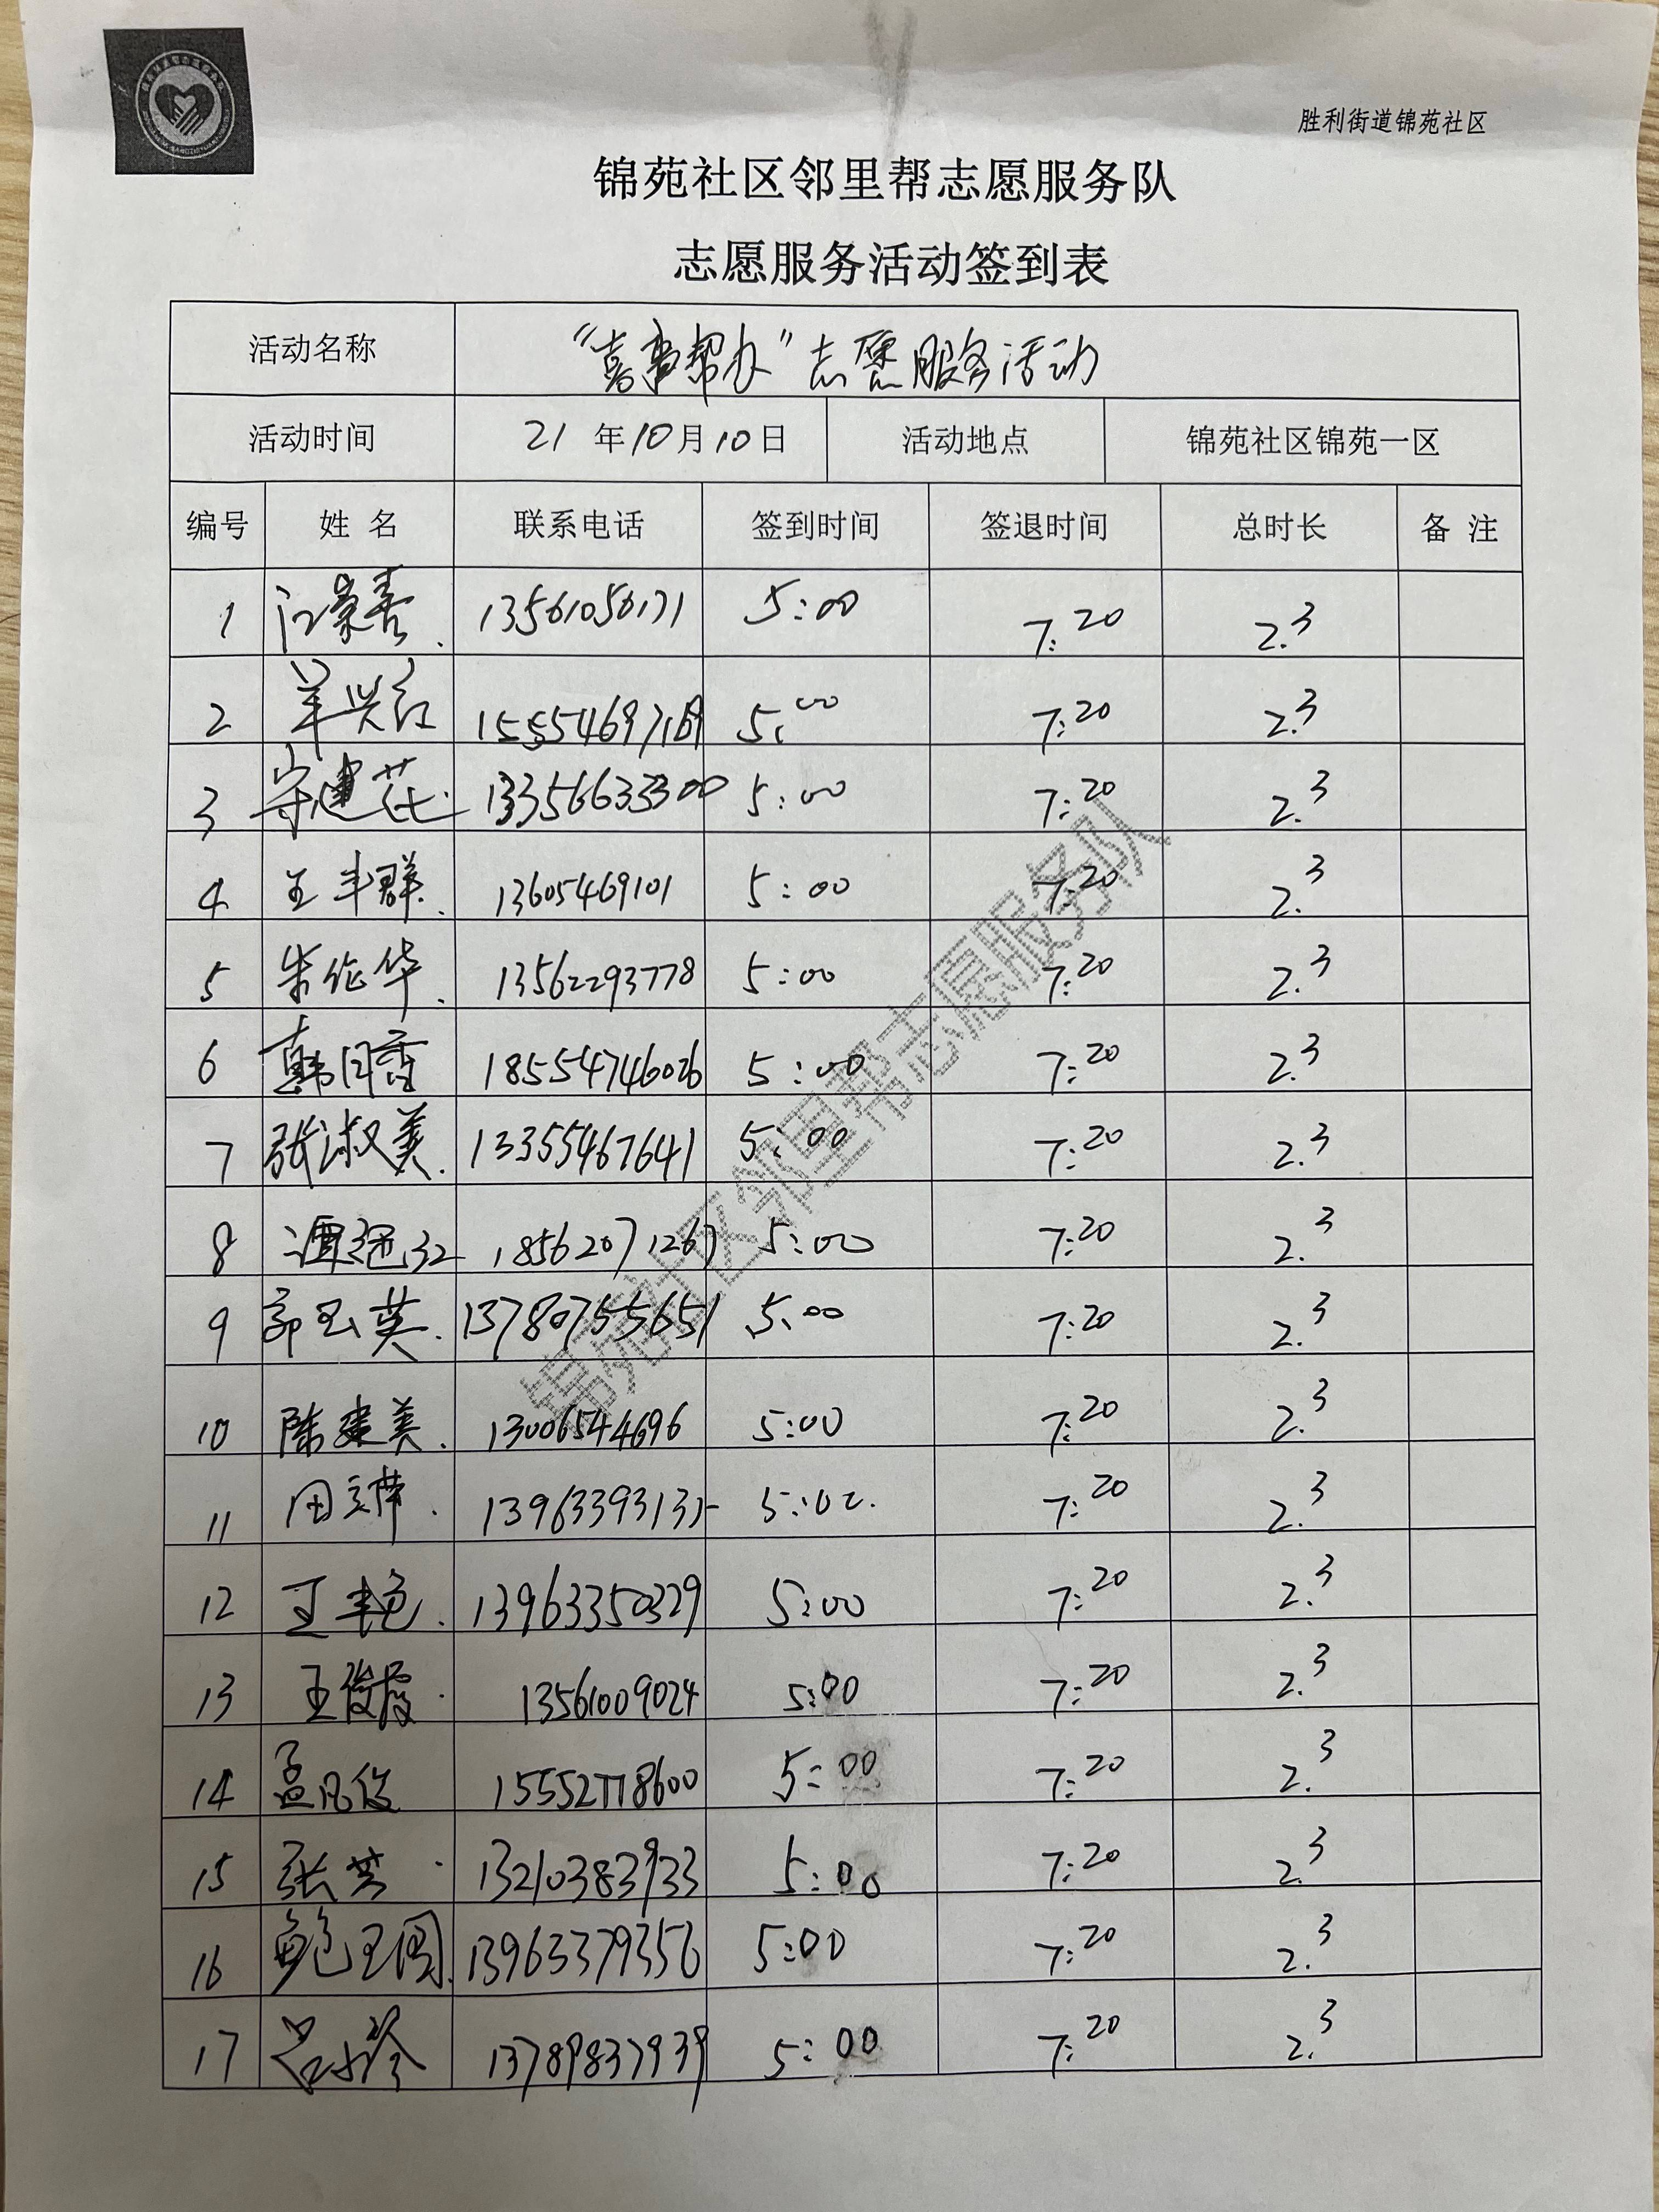 胜利街道锦苑社区
锦苑社区邻里帮志愿服务队
志愿服务活动签到表
活动名称 “喜事帮办”志愿服务活动
活动时间 21年10月10日 活动地点 锦苑社区锦苑一区
编号 姓名 联系电话 签到时间 签退时间 总时长 备注
1 13561056171 5:00 7:20 2.3
2 羊兴红 15554697169 5:00 7:20 2.3
3 13356633300 5:00 7:20 2.3
4 王丰群. 13605469101 5:00 7:20 2.3
5 朱作华. 13562293778 5:00 7:20 2.3
6 韩月香 18554746026 5:00 7:20 2.3
7 张淑美. 13355467641 5:00 7:20 2.3
8 18562071267 5:00 7:20 2.3
9 郭玉英. 13780755651 5:00 7:20 2.3
10 陈建美. 13006544696 5:00 7:20 2.3
11 5:02. 7:20 2.3
12 王丰艳. 13963350329 5:00 7:20 2.3
13 王俊霞. 13561009024 5:00 7:20 2.3
14 孟凡俊 15552778600 5:00 7:20 2.3
15 张芳. 13210383933 5:00 7:20 2.3
16 鲍玉图. 13963379356 5:00 7:20 2.3
17 吕小玲 13789837939 5:00 7:20 2.3
锦苑社区邻里帮志愿服务队